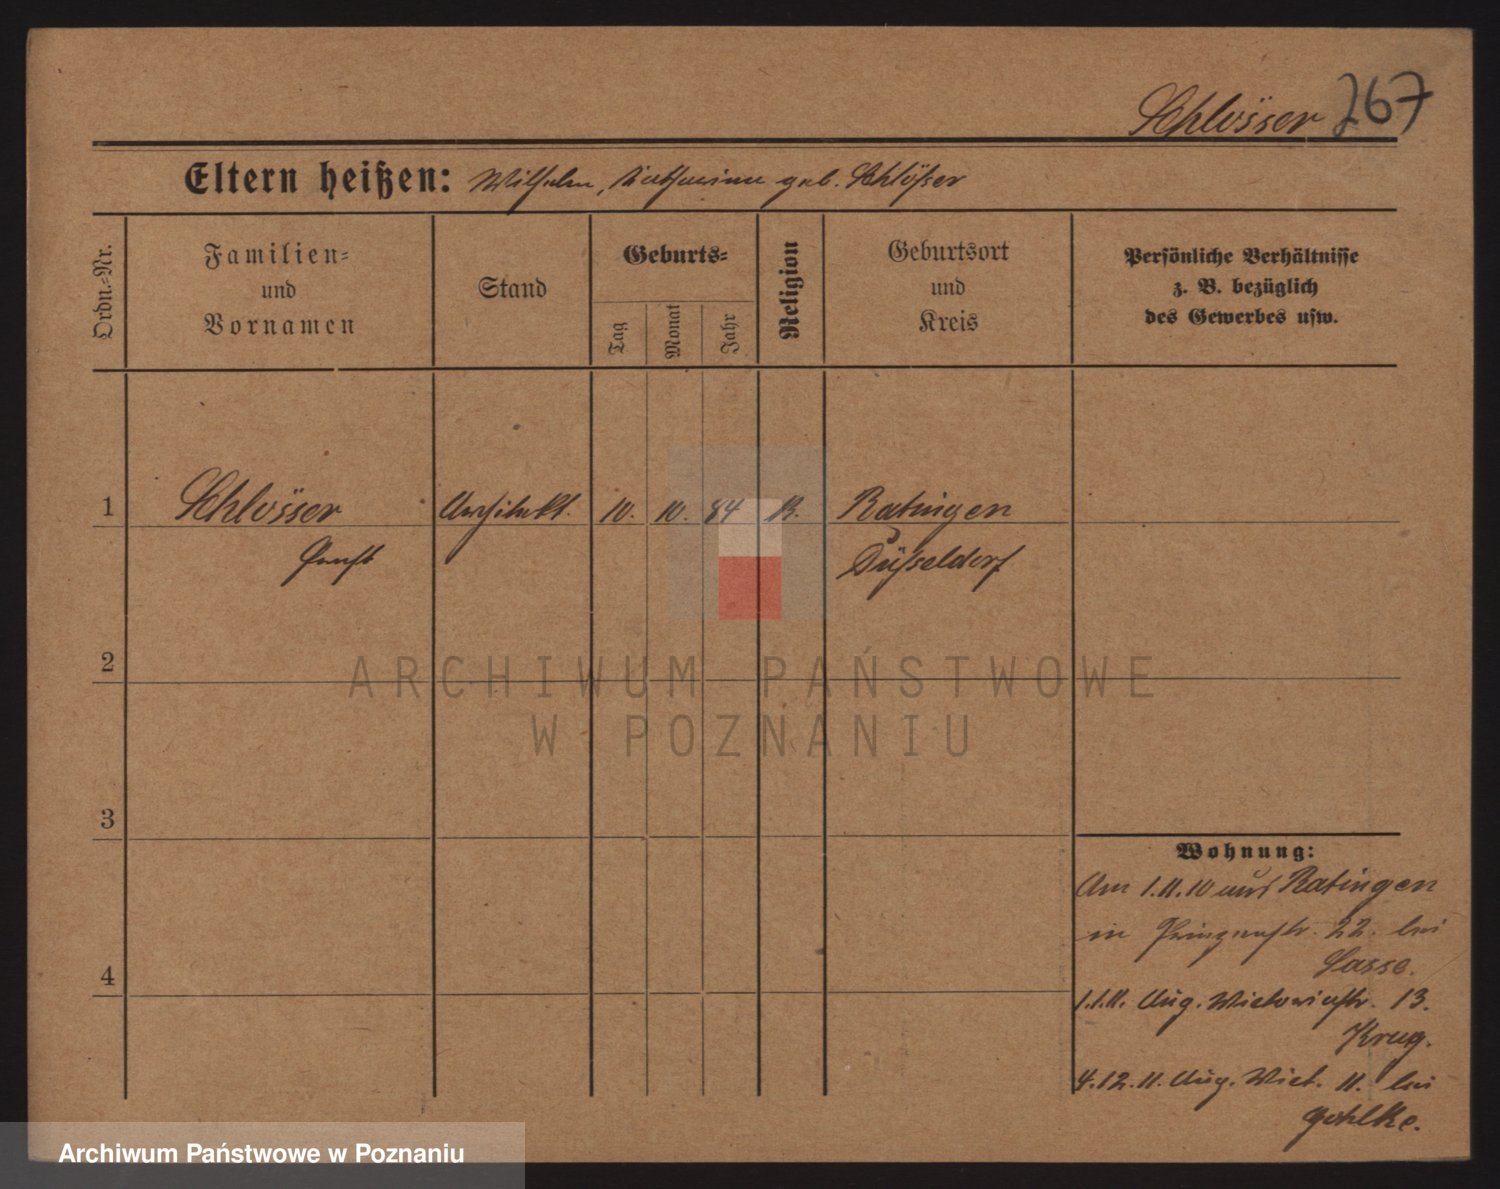 Schlösser 267
Eltern heißen: Wilhelm, Katharina geb. Schlösser
Ordn.=Nr.
Familien=
und
Vornamen
Stand
Geburts=
Tag
Monat
Jahr
Religion
Geburtsort
und
Kreis
Persönliche Verhältnisse
z. B. bezüglich
des Gewerbes usw.
1
Schlösser
Ernst
Architekt.
10. 10. 84
K.
Ratingen
Düsseldorf
2
3
4
ARCHIWUM PAŃSTWOWE
W POZNANIU
Wohnung:
Am 1.11.10 aus Ratingen
in Prinzenstr. 22. bei
Sasse.
1.1.11. Aug. Victoriastr. 13.
Krug.
4.12.11. Aug. Vict. 11. bei
Gohlke.
Archiwum Państwowe w Poznaniu